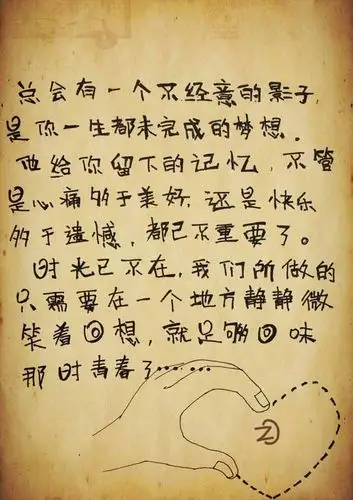 总会有一个不经意的影子,
是你一生都未完成的梦想.
他给你留下的记忆,不管
是心痛多于美好.还是快乐
多于遗憾,都已不重要了。
时光已不在,我们所做的
只需要在一个地方静静微
笑着回想,就足够回味
那时青春了……